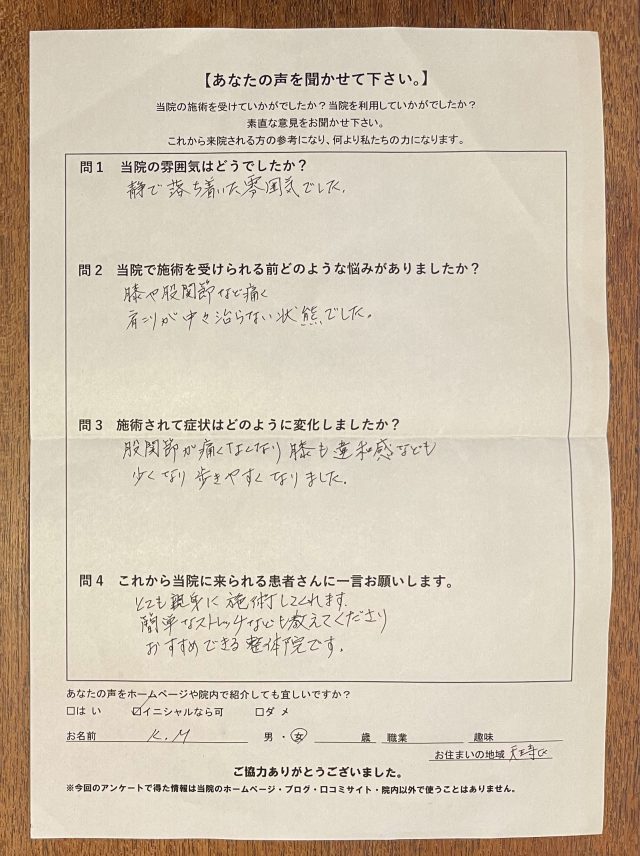 【あなたの声を聞かせて下さい。】
当院の施術を受けていかがでしたか？当院を利用していかがでしたか？
素直な意見をお聞かせ下さい。
これから来院される方の参考になり、何より私たちの力になります。
問1 当院の雰囲気はどうでしたか？
静で落ち着いた雰囲気でした。
問2 当院で施術を受けられる前どのような悩みがありましたか？
膝や股関節など痛く
肩こりが中々治らない状態でした。
問3 施術されて症状はどのように変化しましたか？
股関節が痛くなくなり膝も違和感なども
少くなり歩きやすくなりました。
問4 これから当院に来られる患者さんに一言お願いします。
とても親身に施術してくれます。
簡単なストレッチなども教えてくださり
おすすめできる整体院です。
あなたの声をホームページや院内で紹介しても宜しいですか？
☐はい ☑イニシャルなら可 ☐ダメ
お名前 K.M 男・女 歳 職業 趣味
お住まいの地域 天王寺区
ご協力ありがとうございました。
※今回のアンケートで得た情報は当院のホームページ・ブログ・口コミサイト・院内以外で使うことはありません。